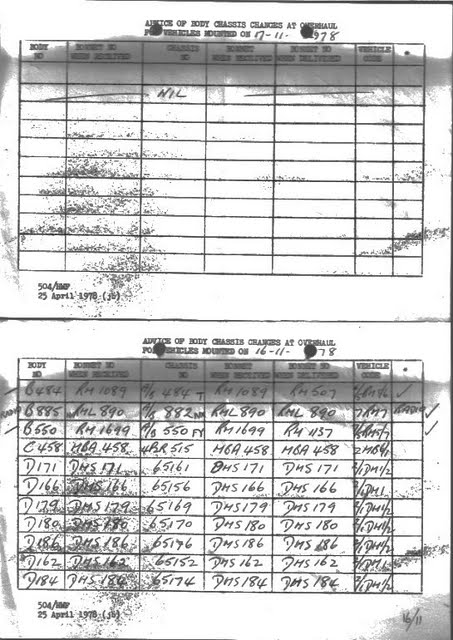 ADVICE OF BODY CHASSIS CHANGES AT OVERHAUL
FOR VEHICLES MOUNTED ON 17-11- 1978
BODY NO BONNET NO WHEN RECEIVED CHASSIS NO BONNET WHEN RECEIVED BONNET WHEN DELIVERED VEHICLE CODE
NIL
504/HMP
25 April 1978 (jb)
ADVICE OF BODY CHASSIS CHANGES AT OVERHAUL
FOR VEHICLES MOUNTED ON 16-11- 78
BODY NO BONNET NO WHEN RECEIVED CHASSIS NO BONNET NO WHEN RECEIVED BONNET NO WHEN DELIVERED VEHICLE CODE
B484 RM1089 A/S 484 T RM1089 RM507 ✓
B885 RML 890 A/S 882 RML 890 RML 890 7RM7 RADIO ✓
B550 RM1699 A/S 550 FY RM1699 RM 1137 ✓
C458 MBA 458 4BR 515 MBA 458 MBA 458
D171 DMS 171 65161 DMS 171 DMS 171
D166 DMS 166 65156 DMS 166 DMS 166
D179 DMS 179 65169 DMS179 DMS 179
D180 DMS 180 65170 DMS 180 DMS 180
D186 DMS 186 65176 DMS 186 DMS 186
D162 DMS 162 65152 DMS 162 DMS 162
D184 DMS 184 65174 DMS184 DMS 184
504/HMP
25 April 1978 (jb)
16/11